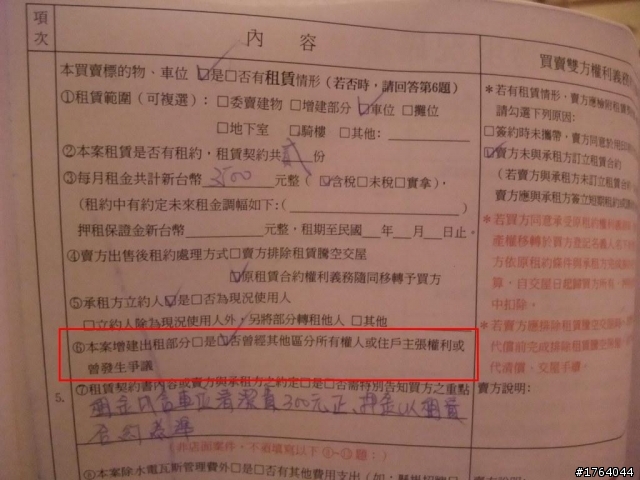 項次
內容
買賣雙方權利義務
本買賣標的物、車位☑是□否有租賃情形（若否時，請回答第6題）
①租賃範圍（可複選）：□委賣建物□增建部分☑車位□攤位
□地下室□騎樓□其他：
②本案租賃是否有租約，租賃契約共貳份
③每月租金共計新台幣3500元整（☑含稅□未稅□實拿），
（租約中有約定未來租金調幅如下：（
押租保證金新台幣元整，租期至民國年月日止。
④賣方出售後租約處理方式□賣方排除租賃騰空交屋
☑原租賃合約權利義務隨同移轉予買方
⑤承租方立約人☑是□否為現況使用人
□立約人除為現況使用人外，另將部分轉租他人□其他
⑥本案增建出租部分□是☑否曾經其他區分所有權人或住戶主張權利或
曾發生爭議
⑦租賃契約書內容或賣方與承租方之約定□是□否需特別告知買方之重點
5.
租金內含車位清潔費300元正,押金以租賃
合約為準
（非店面案件，不須填寫以下
本案除水電瓦斯管理費外□是□否有其他費用支出（如：
＊若有租賃情形，賣方應檢附租賃
請勾選下列原因：
□簽約時未攜帶，賣方同意於用印
☑賣方未與承租方訂立租賃合約
（若賣方與承租方未訂立租賃合
賣方應與承租方簽立短期租約或
＊若買方同意承受原租約權利義務
產權移轉於買方登記名義人
方依原租約條件與承租方完成
算，自交屋日起歸買方所有，
中扣除。
＊若賣方應排除租賃騰空交屋
代償前完成排除租賃騰空
代清償、交屋手續。
賣方說明：
#1764044